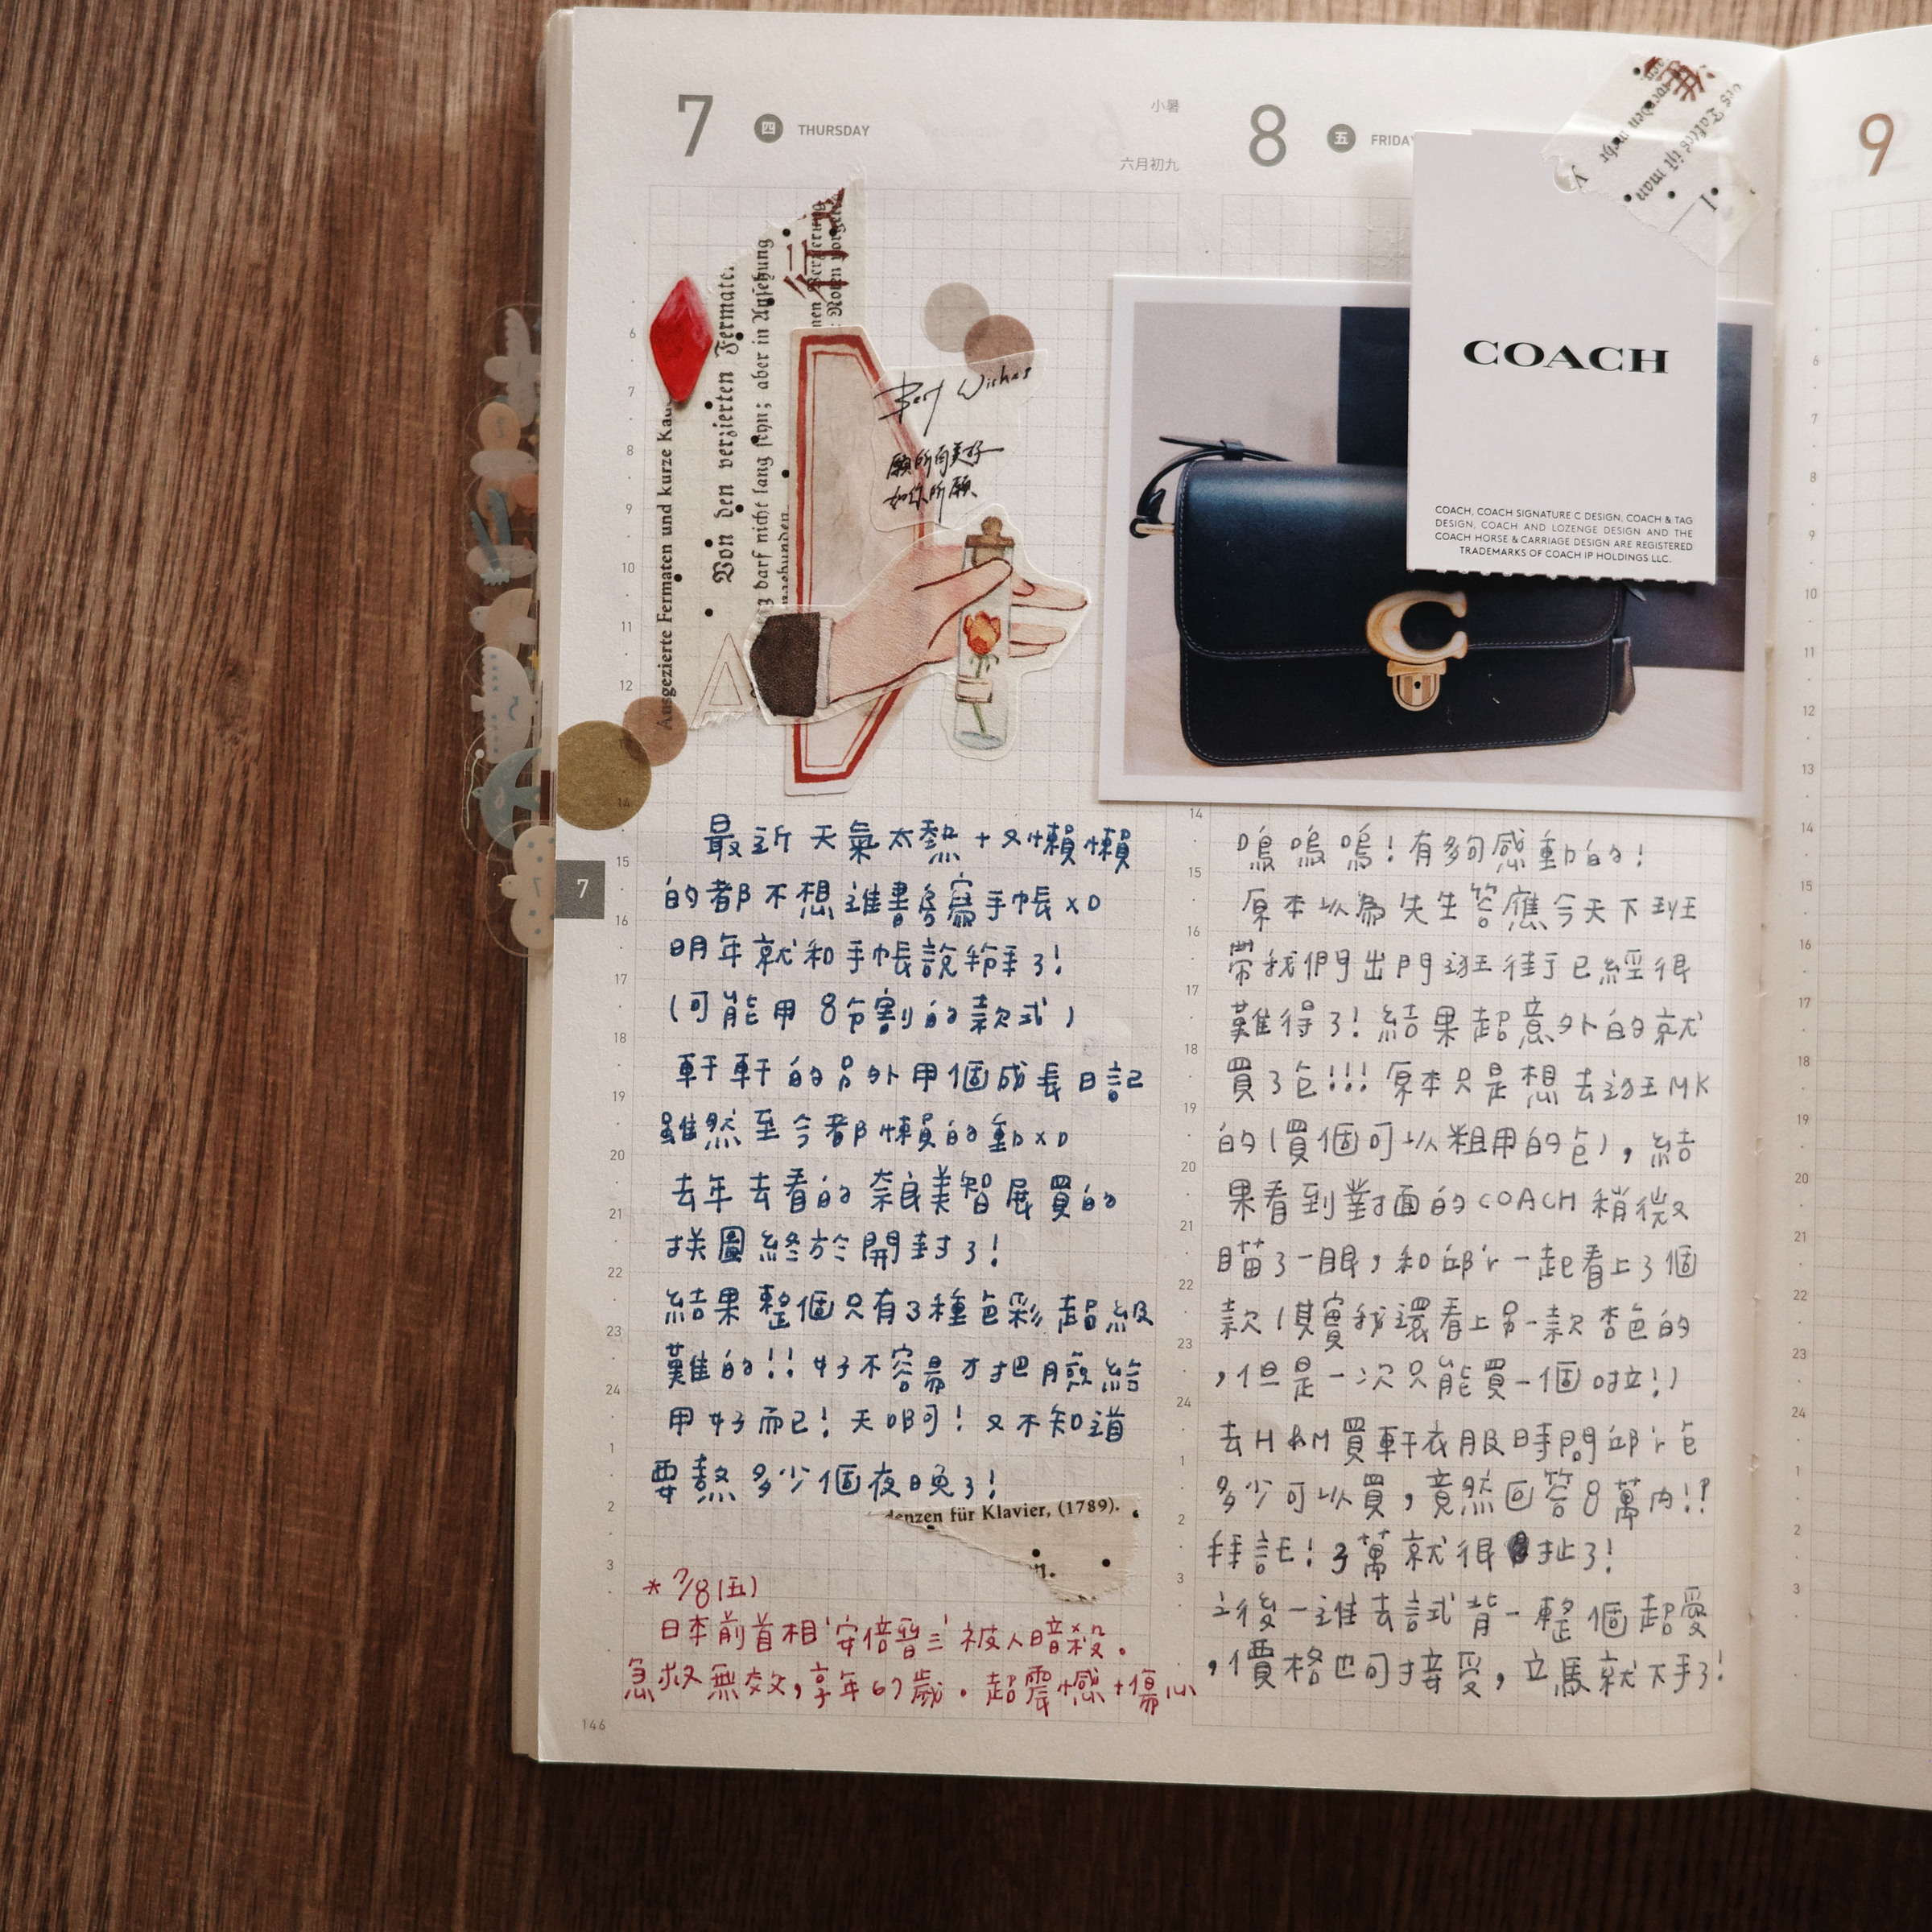 7 四 THURSDAY
小暑
六月初九
Ausgezierte Fermaten und kurze
Von den verzierten Fermaten
darf nicht lang seyn; aber in Ansehung
Best Wishes
願所向美好
如你所願
最近天氣太熱+又懶懶
的都不想進書房寫手帳XD
明年就和手帳說掰了!
(可能用8分割的款式)
軒軒的另外用個成長日記
雖然至今都懶的動XD
去年去看的奈良美智展買的
拼圖終於開封了!
結果整個只有3種色彩超級
難的!!好不容易才把臉給
用好而已!天啊!又不知道
要熬多少個夜晚了!
denzen für Klavier, (1789).
n.
*7/8(五)
日本前首相'安倍晉三'被人暗殺。
急救無效,享年67歲。超震憾+傷心
146
7
8 五 FRIDAY
COACH
COACH, COACH SIGNATURE C DESIGN, COACH & TAG
DESIGN, COACH AND LOZENGE DESIGN AND THE
COACH HORSE & CARRIAGE DESIGN ARE REGISTERED
TRADEMARKS OF COACH IP HOLDINGS LLC.
嗚嗚嗚!有夠感動的!
原本以為先生答應今天下班
帶我們出門逛街已經很
難得了!結果超意外的就
買了包!!!原本只是想去逛MK
的(買個可以粗用的包),結
果看到對面的COACH稍微
瞄了一眼,和邱'r一起看上了個
款(其實我還看上另一款杏色的
,但是一次只能買一個啦!)
去H&M買軒衣服時問邱'r包
多少可以買,竟然回答8萬內!?
拜託!3萬就很扯了!
之後一進去試背一整個超愛
,價格也可接受,立馬就下手了!
9